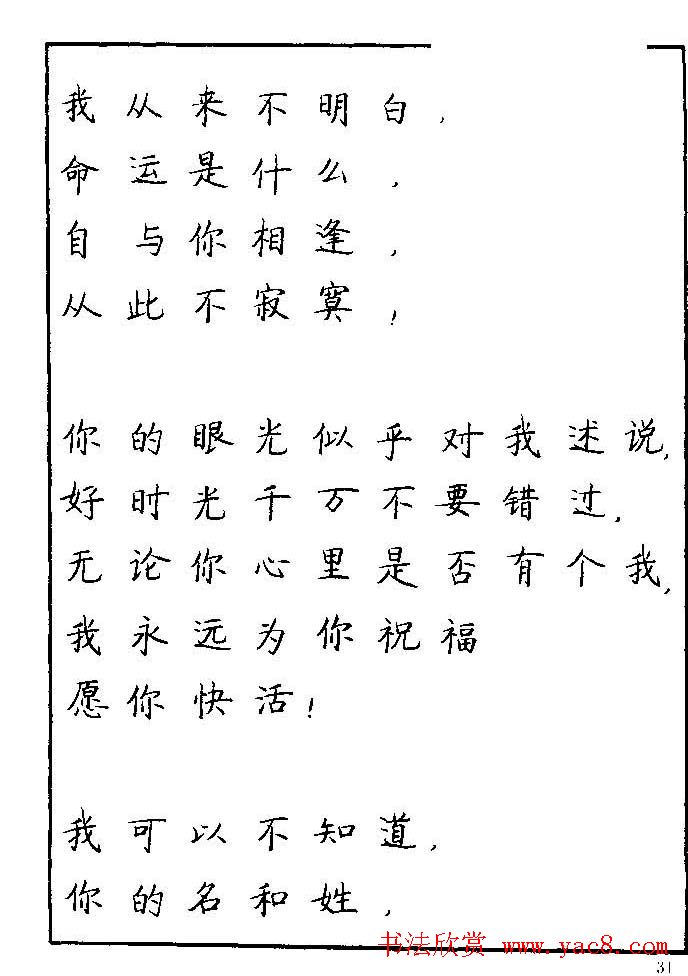 我从来不明白，
命运是什么，
自与你相逢，
从此不寂寞！
你的眼光似乎对我述说，
好时光千万不要错过，
无论你心里是否有个我，
我永远为你祝福
愿你快活！
我可以不知道，
你的名和姓，
书法欣赏 www.yac8.com
31